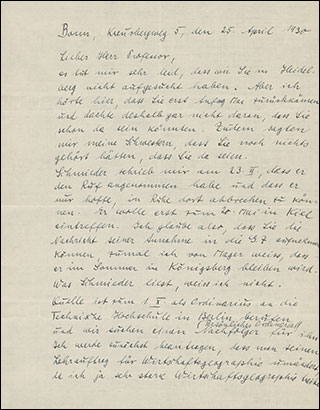 Bonn, Kreuzbergweg 5, den 25. April 1930
Lieber Herr Professor,
es tut mir sehr leid, dass wir Sie in Heidel-
berg nicht aufgesucht haben. Aber ich
hörte hier, dass Sie erst Anfang Mai zurückkämen
und dachte deshalb gar nicht daran, dass Sie
schon da sein könnten. Zudem sagten
mir meine Schwestern, dass Sie noch nichts
gehört hätten, dass Sie da seien.
Schmieder schrieb mir am 23. II, dass er
den Ruf angenommen habe und dass er
nur hoffe, in Ruhe dort abbrechen zu kön-
nen. Er wolle erst zum 20 Mai in Kiel
eintreffen. Ich glaube also, dass Sie die
Nachricht seiner Annahme in die G Z aufnehmen
können, zumal ich von Mager weiss, dass
er im Sommer in Königsberg bleiben wird.
Was Schmieder liest, weiss ich nicht.
Quelle ist zum 1. X als Ordinarius an die
Technische Hochschule in Berlin berufen
(persönliches Ordinariat)
und wir suchen einen Nachfolger für ihn
Ich werde zunächst beantragen, dass man seinen
Lehrauftrag für Wirtschaftsgeographie umändert
da ich ja sehr stark Wirtschaftsgeographie